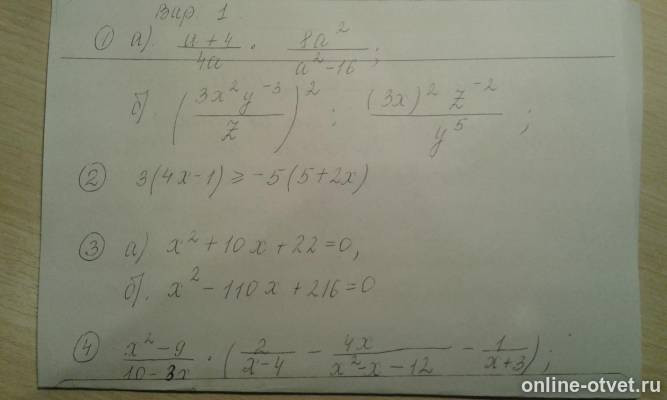 Вар 1
① а). (a + 4)/(4a) · (8a²)/(a² - 16);
б). ((3x²y⁻³)/z)² : ((3x)² z⁻²)/(y⁵);
② 3(4x-1) ≥ -5(5+2x)
③ а) x² + 10x + 22 = 0,
б). x² - 110x + 216 = 0
④ (x² - 9)/(10 - 3x) · (2/(x-4) - 4x/(x² - x - 12) - 1/(x+3));
online-otvet.ru